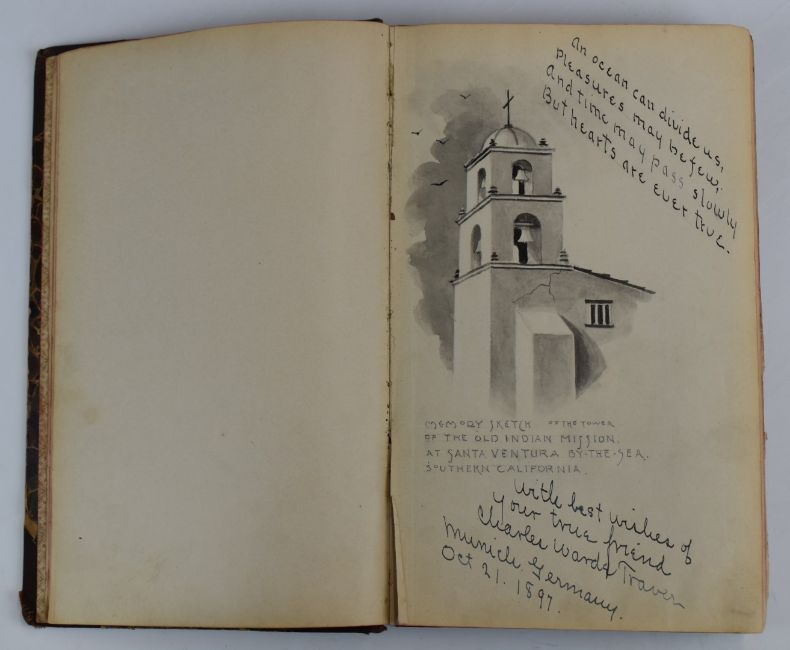 An ocean can divide us,
Pleasures may be few;
And time may pass slowly
But hearts are ever true.
MEMORY SKETCH OF THE TOWER
OF THE OLD INDIAN MISSION.
AT SANTA VENTURA BY-THE-SEA.
SOUTHERN CALIFORNIA.
With best wishes of
your true friend
Charles Warde Traver
Munich. Germany.
Oct 21. 1897.